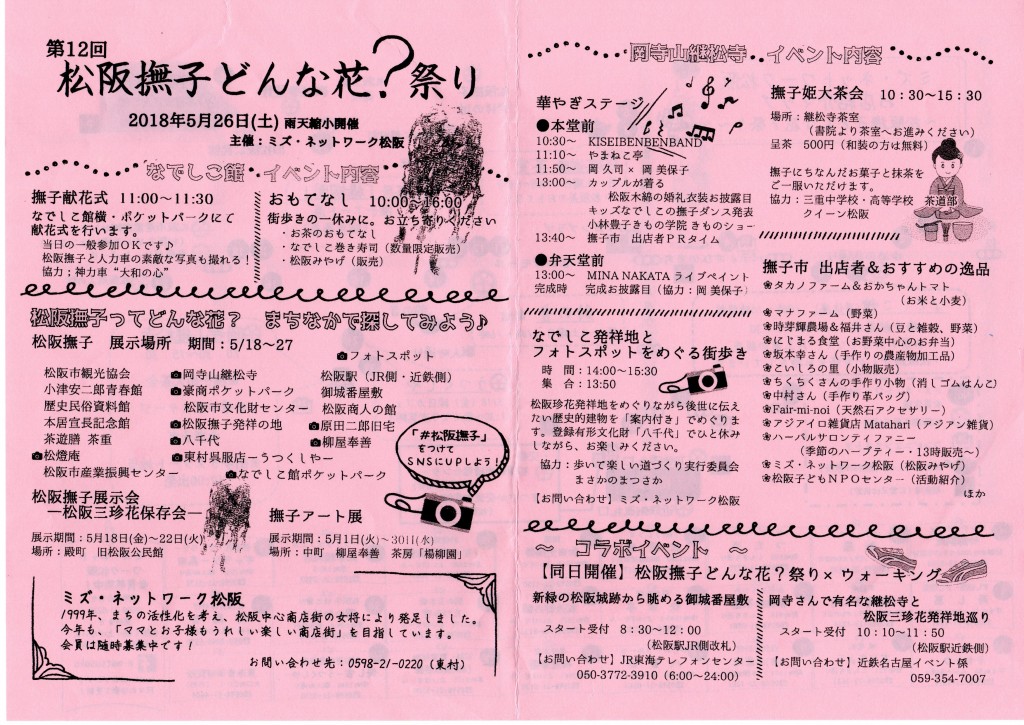 第12回
松阪撫子どんな花？祭り
2018年5月26日(土) 雨天縮小開催
主催：ミズ・ネットワーク松阪
なでしこ館・イベント内容
撫子献花式 11:00～11:30
なでしこ館横・ポケットパークにて
献花式を行います。
当日の一般参加OKです♪
松阪撫子と人力車の素敵な写真も撮れる！
協力；神力車 “大和の心”
おもてなし 10:00～16:00
街歩きの一休みに。お立ち寄りください
・お茶のおもてなし
・なでしこ巻き寿司（数量限定販売）
・松阪みやげ（販売）
松阪撫子ってどんな花？ まちなかで探してみよう♪
松阪撫子 展示場所 期間：5/18～27
フォトスポット
松阪市観光協会
小津安二郎青春館
歴史民俗資料館
本居宣長記念館
茶遊膳 茶重
松燈庵
松阪市産業振興センター
岡寺山継松寺
豪商ポケットパーク
松阪市文化財センター
松阪撫子発祥の地
八千代
東村呉服店－うつくしや－
なでしこ館ポケットパーク
松阪駅（JR側・近鉄側）
御城番屋敷
松阪商人の館
原田二郎旧宅
柳屋奉善
「#松阪撫子」
をつけて
SNSにUPしよう！
松阪撫子展示会
－松阪三珍花保存会－
展示期間：5月18日(金)～22日(火)
場所：殿町 旧松阪公民館
撫子アート展
展示期間：5月1日(火)～30日(水)
場所：中町 柳屋奉善 茶房「楊柳園」
ミズ・ネットワーク松阪
1999年、まちの活性化を考え、松阪中心商店街の女将により発足しました。
今年も、「ママとお子様もうれしい楽しい商店街」を目指しています。
会員は随時募集中です！
お問い合わせ先：0598-21-0220（東村）
岡寺山継松寺・イベント内容
華やぎステージ
●本堂前
10:30～ KISEIBENBENBAND
11:10～ やまねこ亭
11:50～ 岡 久司 × 岡 美保子
13:00～ カップルが着る
松阪木綿の婚礼衣装お披露目
キッズなでしこの撫子ダンス発表
小林豊子きもの学院 きものショー
13:40～ 撫子市 出店者PRタイム
●弁天堂前
13:00～ MINA NAKATA ライブペイント
完成時 完成お披露目（協力：岡 美保子）
なでしこ発祥地と
フォトスポットをめぐる街歩き
時 間：14:00～15:30
集 合：13:50
松阪珍花発祥地をめぐりながら後世に伝え
たい歴史的建物を「案内付き」でめぐりま
す。登録有形文化財「八千代」でひと休み
しながら、お楽しみください。
協力：歩いて楽しい道づくり実行委員会
まさかのまつさか
【お問い合わせ】ミズ・ネットワーク松阪
撫子姫大茶会 10：30～15：30
場所：継松寺茶室
（書院より茶室へお進みください）
呈茶 500円（和装の方は無料）
撫子にちなんだお菓子と抹茶を
ご一服いただけます。
協力：三重中学校・高等学校
クイーン松阪
茶道部
撫子市 出店者＆おすすめの逸品
❀タカノファーム＆おかちゃんトマト
（お米と小麦）
❀マナファーム（野菜）
❀時芽輝農場＆福井さん（豆と雑穀、野菜）
❀にじまる食堂（お野菜中心のお弁当）
❀坂本幸さん（手作りの農産物加工品）
❀こいしろの里（小物販売）
❀ちくちくさんの手作り小物（消しゴムはんこ）
❀中村さん（手作り革バッグ）
❀Fair-mi-noi（天然石アクセサリー）
❀アジアイロ雑貨店 Matahari（アジアン雑貨）
❀ハーバルサロンティファニー
（季節のハーブティー・13時販売～）
❀ミズ・ネットワーク松阪（松阪みやげ）
❀松阪子どもNPOセンター（活動紹介）
ほか
～ コラボイベント ～
【同日開催】松阪撫子どんな花？祭り×ウォーキング
新緑の松阪城跡から眺める御城番屋敷
スタート受付 8：30～12：00
（松阪駅JR側改札）
【お問い合わせ】JR東海テレフォンセンター
050-3772-3910（6:00～24:00）
岡寺さんで有名な継松寺と
松阪三珍花発祥地巡り
スタート受付 10：10～11：50
（松阪駅近鉄側）
【お問い合わせ】近鉄名古屋イベント係
059-354-7007